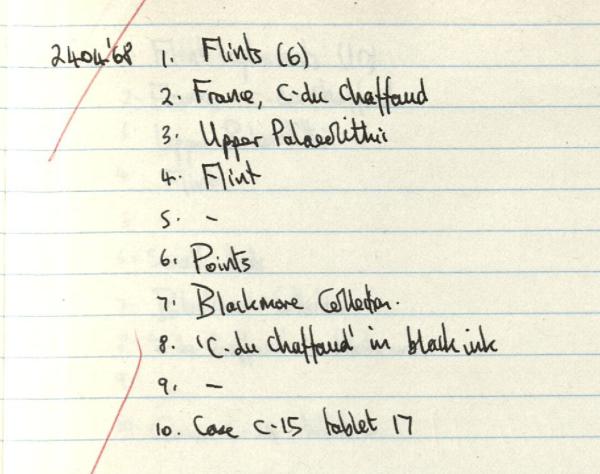 2404'68 1. Flints (6)
2. France, C-du Chaffaud
3. Upper Palaeolithic
4. Flint
5. -
6. Points
7. Blackmore Collection.
8. 'C-du Chaffaud' in black ink
9. -
10. Case C-15 tablet 17